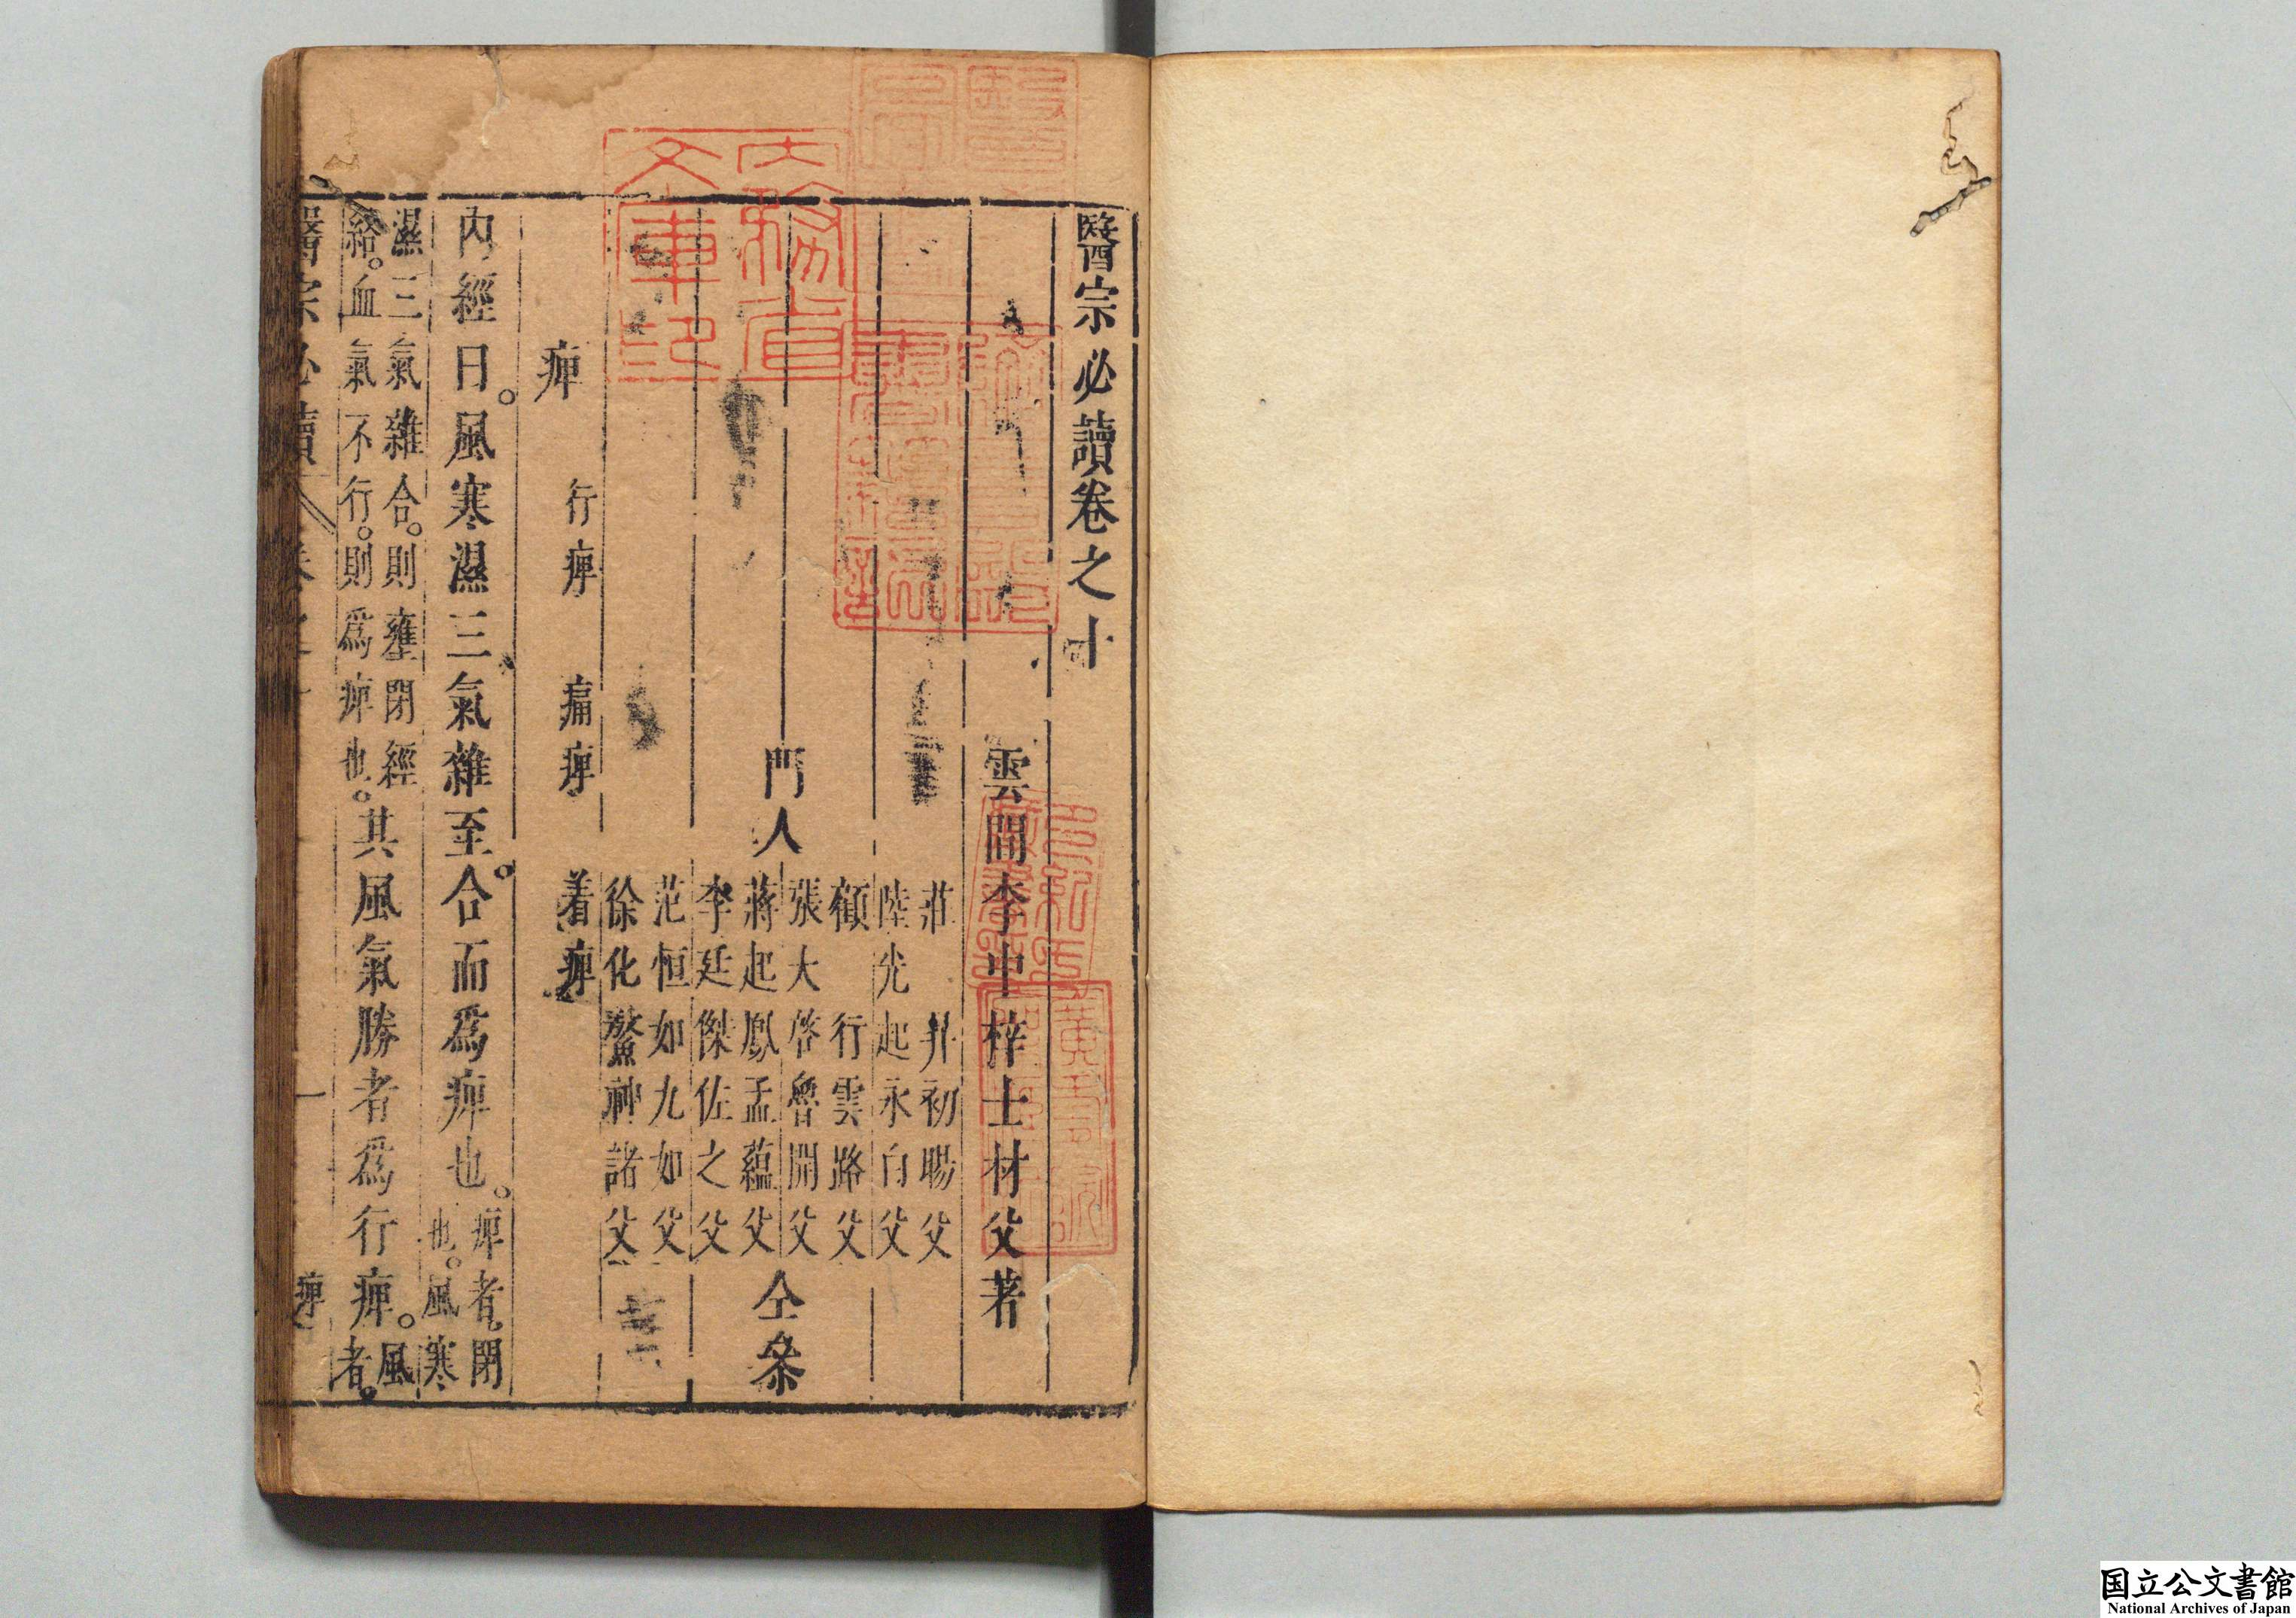 醫宗必讀卷之十
雲間李中梓士材父著
莊　升初暘父
陸光起永白父
顧行雲路父
張大啓魯開父
門人
仝叅
蔣起鳳孟蘊父
李廷傑佐之父
范恒如九如父
徐化鰲神諸父
痺　行痺　痛痺　着痺
内經曰。風寒濕三氣雜至。合而爲痺也。
痺者。閉
也。風寒
濕三氣雜合。則壅閉經
絡。血氣不行。則爲痺也。
其風氣勝者爲行痺。
風
者。
醫宗必讀
一
痺
内務省文庫印
国立公文書館
National Archives of Japan